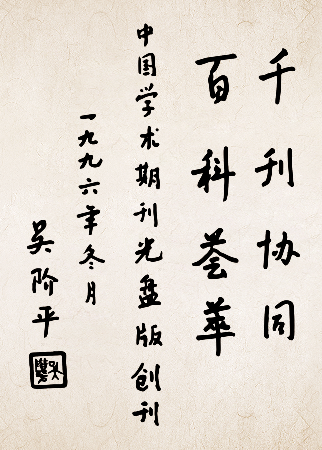 千刊协同
百科荟萃
中国学术期刊光盘版创刊
一九九六年冬月
吴阶平